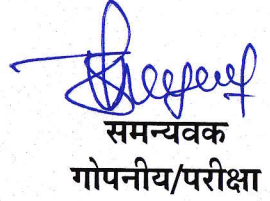 समन्यवक
गोपनीय/परीक्षा